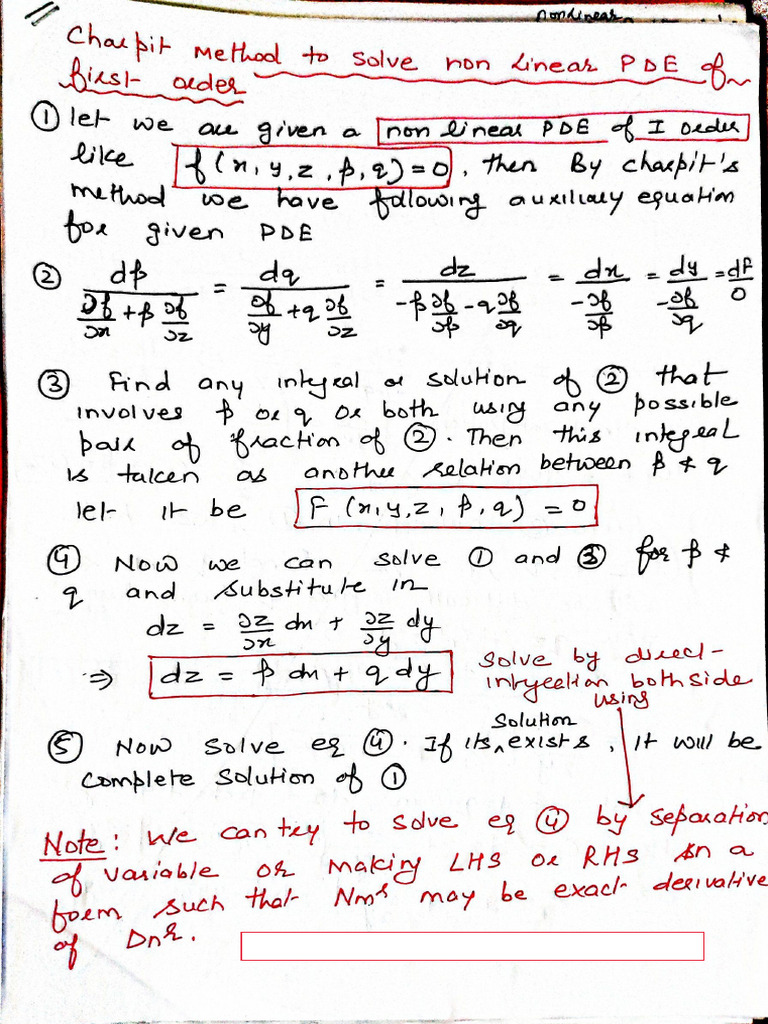 nonlinear
Charpit method to solve non linear PDE of
first order
① let we are given a non linear PDE of I order
like f(x, y, z, p, q) = 0, then By charpit's
method we have following auxiliary equation
for given PDE
② dp/(∂f/∂x + p ∂f/∂z) = dq/(∂f/∂y + q ∂f/∂z) = dz/(-p ∂f/∂p - q ∂f/∂q) = dx/(-∂f/∂p) = dy/(-∂f/∂q) = dF/0
③ Find any integral or solution of ② that
involves p or q or both using any possible
pair of fraction of ②. Then this integral
is taken as another relation between p & q
let it be F (x, y, z, p, q) = 0
④ Now we can solve ① and ③ for p &
q and substitute in
dz = ∂z/∂x dx + ∂z/∂y dy
⇒ dz = p dx + q dy
solve by direct
both side
using
⑤ Now solve eq ④. If its solution exists, it will be
complete solution of ①
Note: We can try to solve eq ④ by separation
of variable or making LHS or RHS in a
form such that Nmr may be exact derivative
of Dnr.